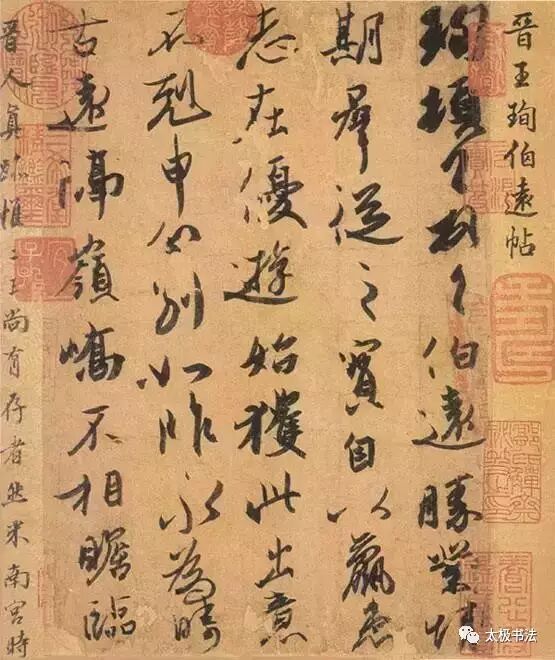 晉王珣伯遠帖
珣頓首頓首伯遠勝業情
期羣從之寶自以羸患
志在優遊始獲此出意
不剋申分別如昨永為疇
古遠隔嶺嶠不相瞻臨
晉人真跡惟二王尚有存者然米南宮時
太极书法